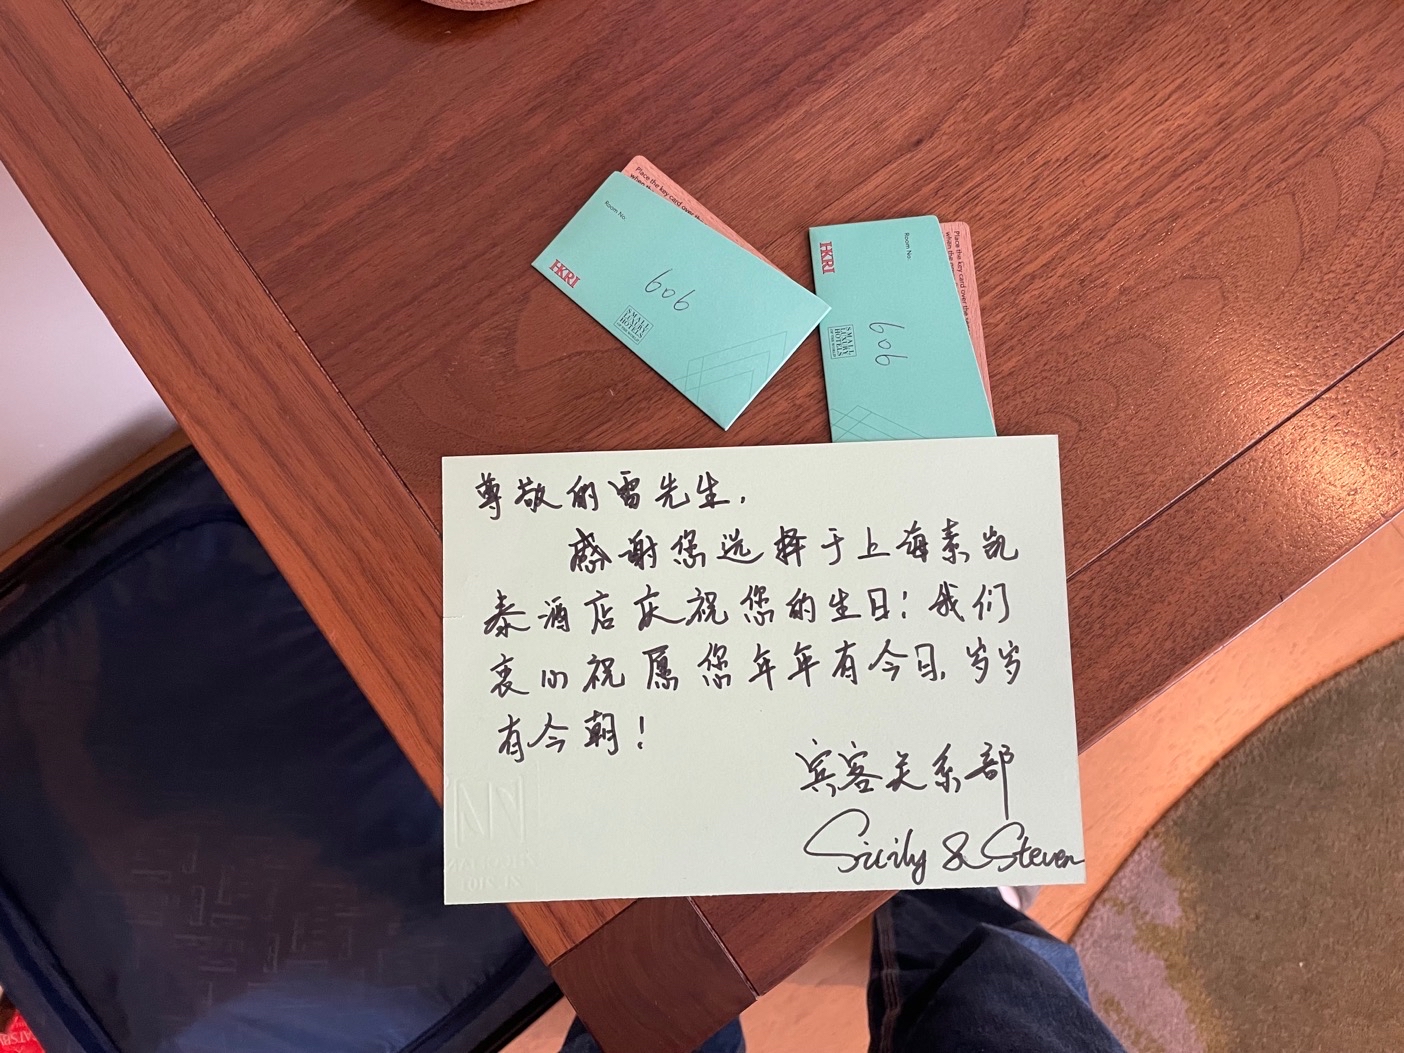 Place the key card over the
when the
Room No.
606
HKRI
SMALL
LUXURY
HOTELS
OF THE WORLD
Place the key card over the
when the
Room No.
606
HKRI
SMALL
LUXURY
HOTELS
OF THE WORLD
尊敬的雷先生,
感谢您选择于上海素凯
泰酒店庆祝您的生日!我们
衷心祝愿您年年有今日,岁岁
有今朝!
宾客关系部
Sicily & Steven